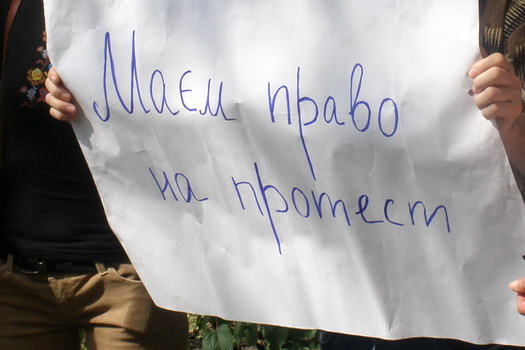 Маєм право
на протест